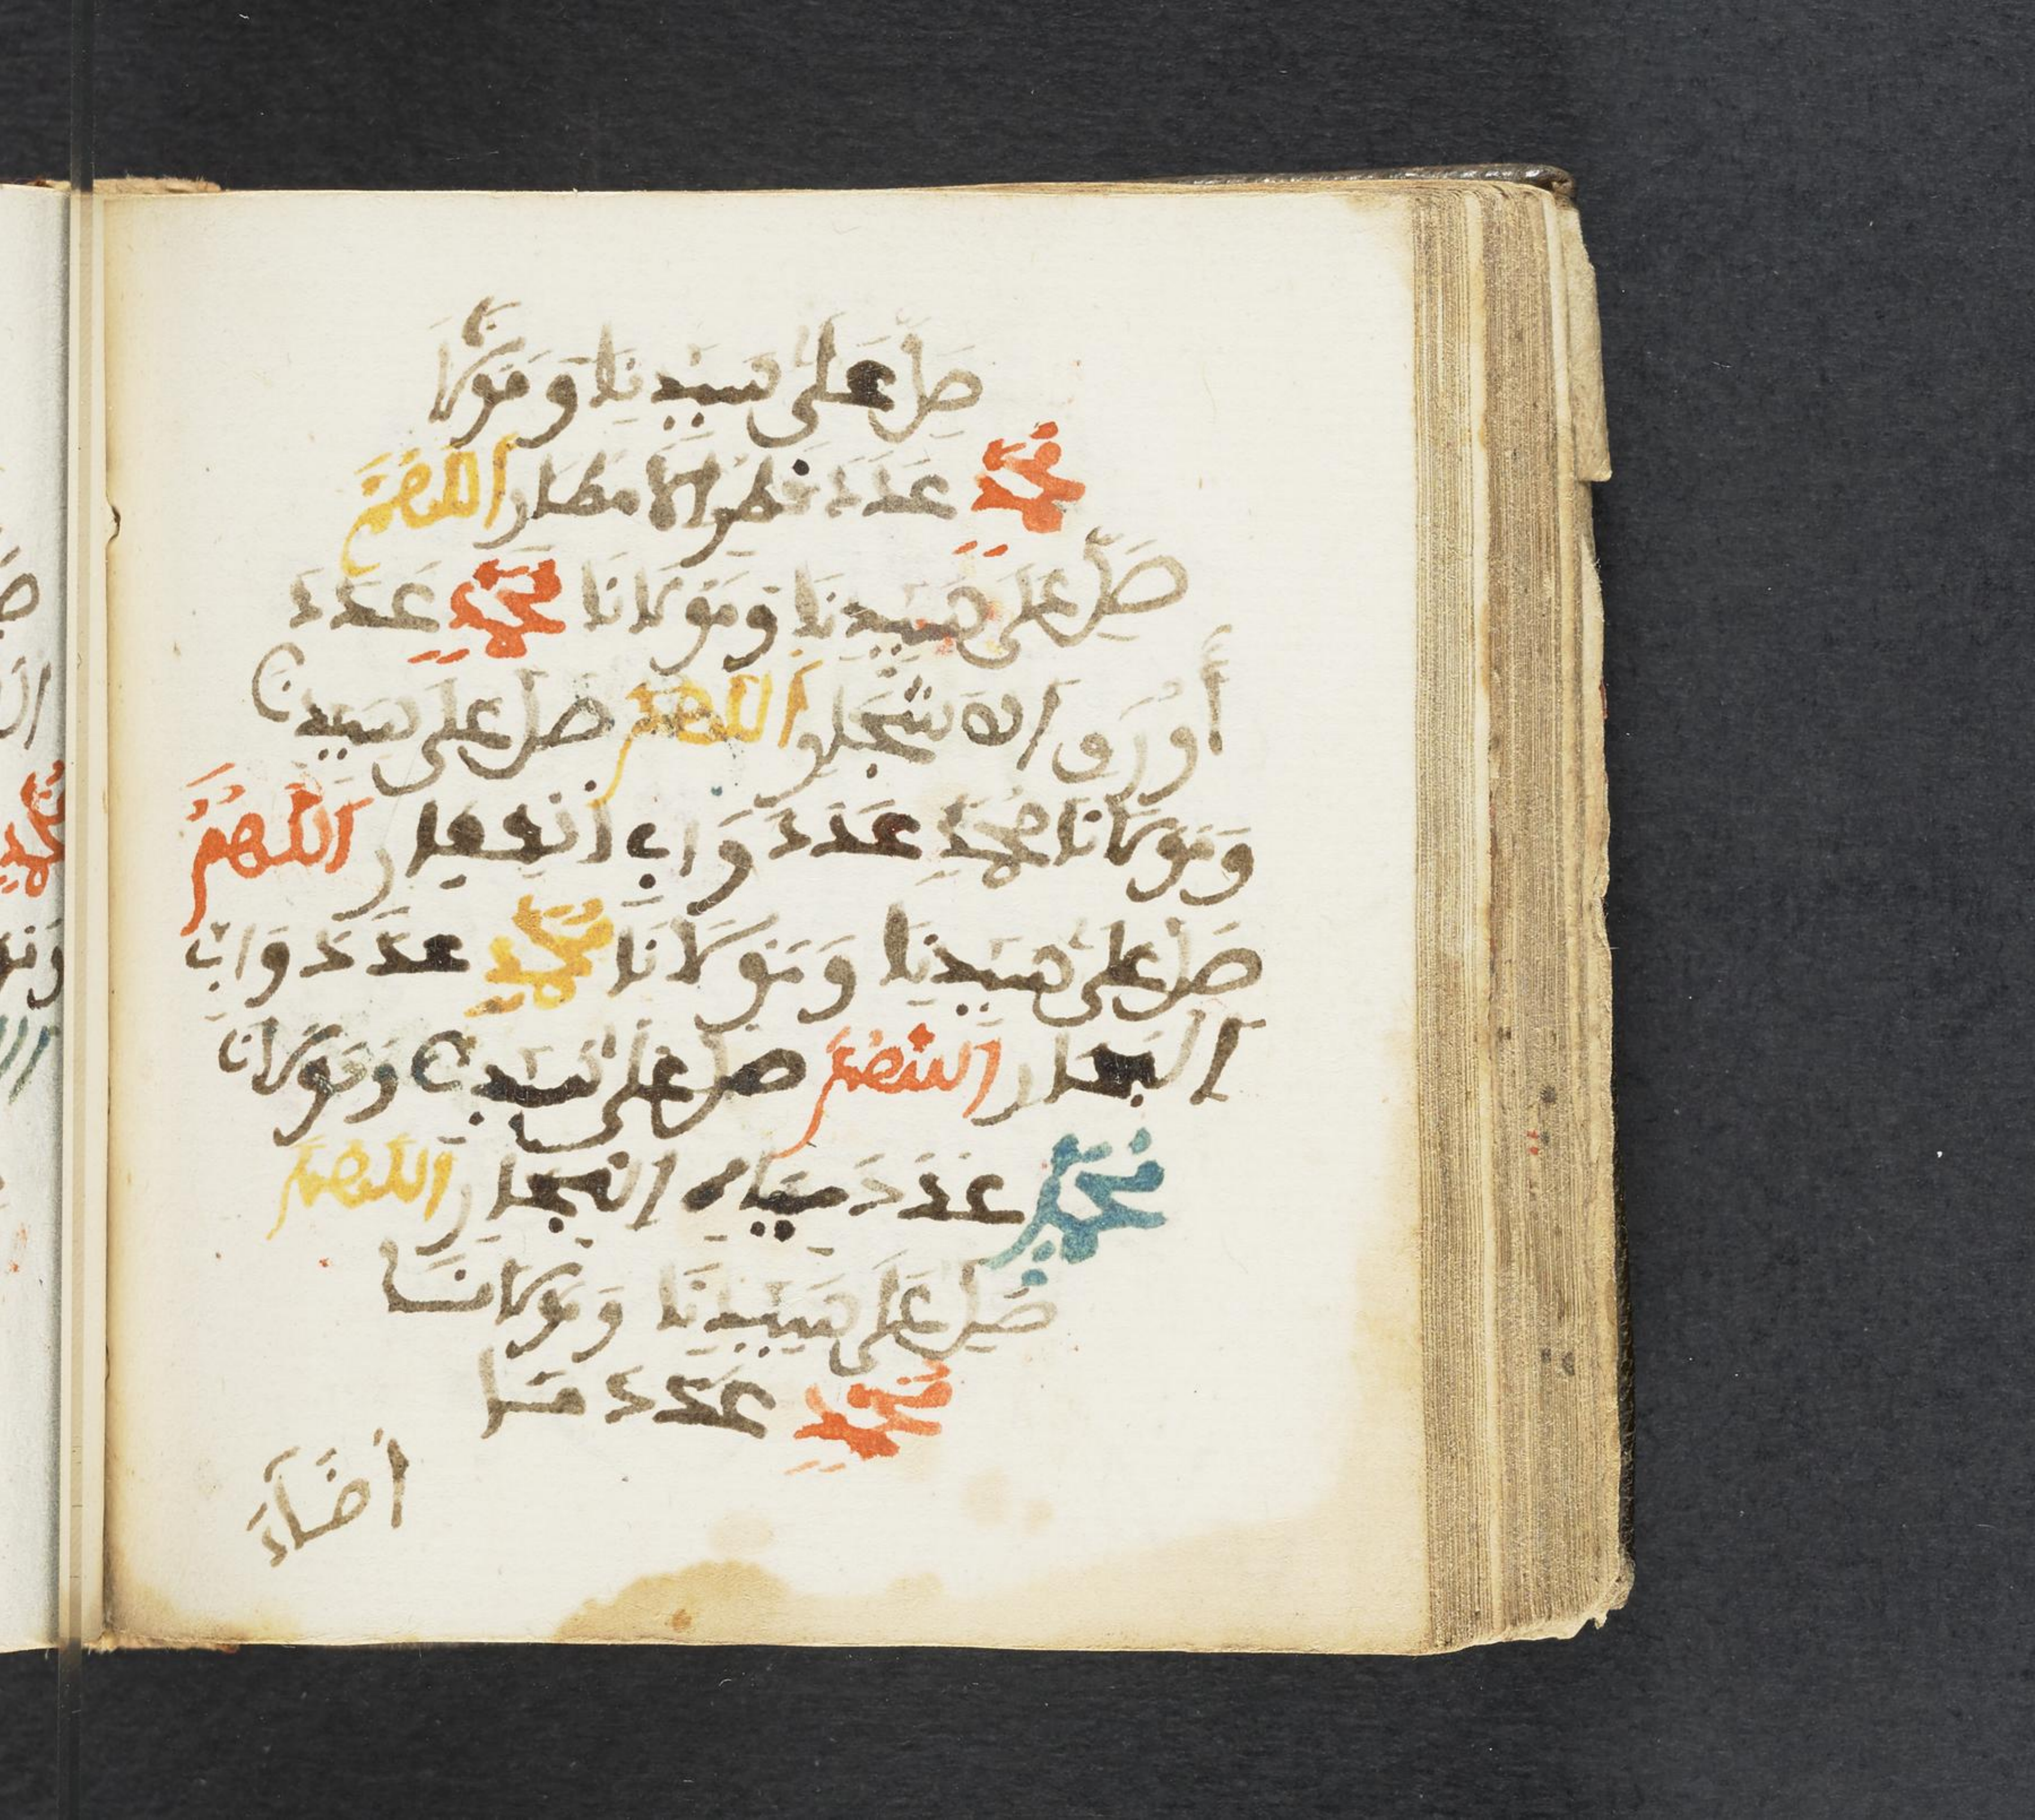 صَلِّ عَلَىٰ سَيِّدِنَا وَمَوْلَانَا
مُحَمَّدٍ عَدَدَ قَطْرِ الَامْطَارِ اللَّهُمَّ
صَلِّ عَلَى سَيِّدِنَا وَمَوْلَانَا مُحَمَّدٍ عَدَدَ
أَوْرَاقِ الَاشْجَارِ اللَّهُمَّ صَلِّ عَلَى سَيِّدِنَا
وَمَوْلَانَا مُحَمَّدٍ عَدَدَ دَوَابِّ الْقِفَارِ اللَّهُمَّ
صَلِّ عَلَىٰ سَيِّدِنَا وَمَوْلَانَا مُحَمَّدٍ عَدَدَ دَوَابِّ
الْبِحَارِ اللَّهُمَّ صَلِّ عَلَىٰ سَيِّدِنَا وَمَوْلَانَا
مُحَمَّدٍ عَدَدَ مِيَاهِ الْبِحَارِ اللَّهُمَّ
صَلِّ عَلَى سَيِّدِنَا وَمَوْلَانَا
مُحَمَّدٍ عَدَدَ مَا
أَضَاءَ